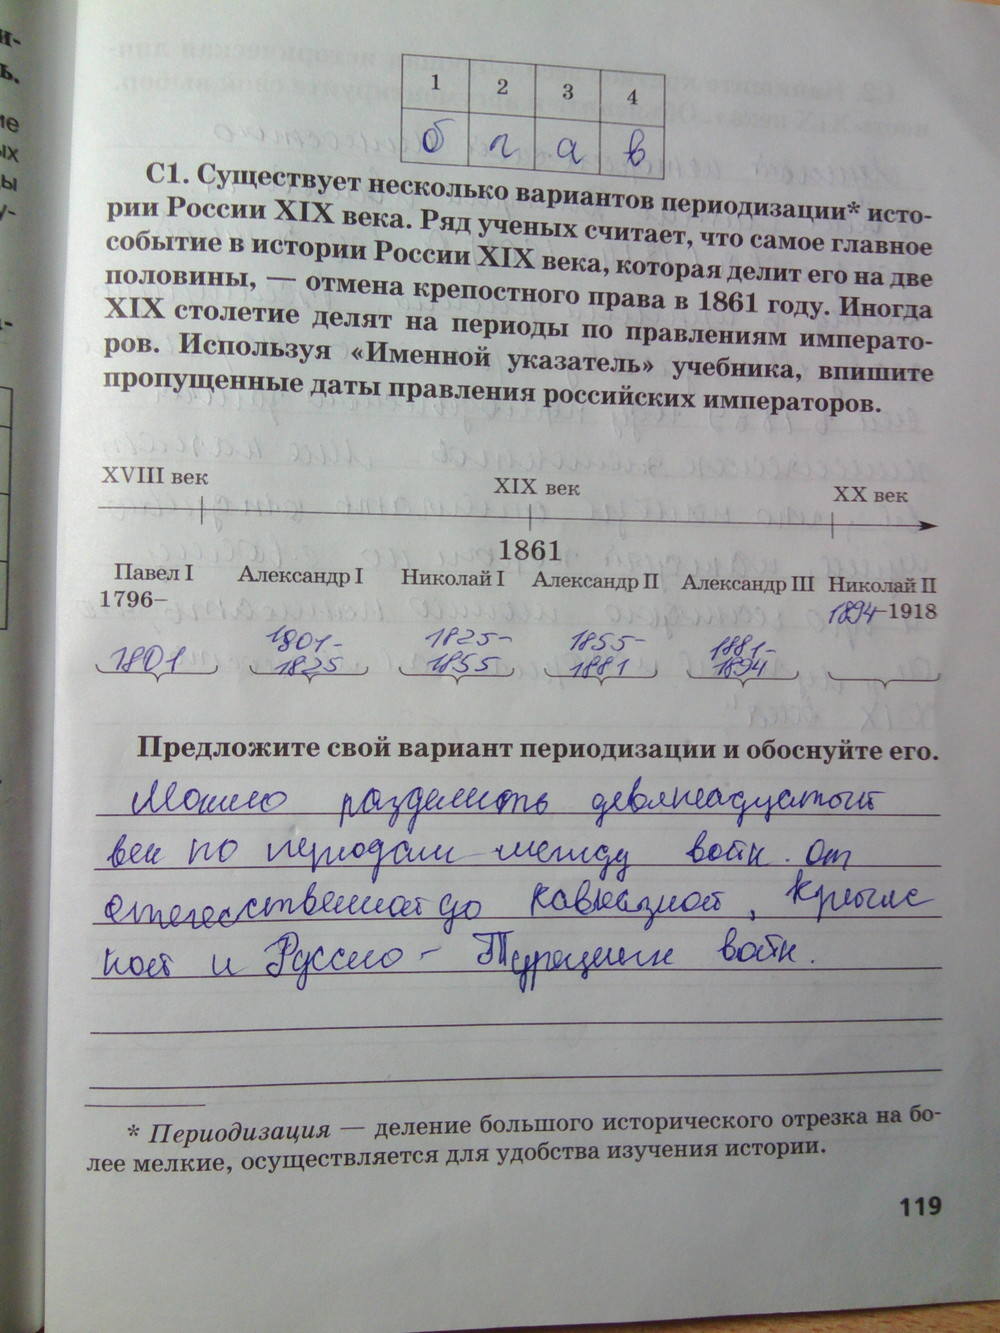 и-
ь.
ие
ых
ды
у-
-
1 2 3 4
б г а в
С1. Существует несколько вариантов периодизации* исто-
рии России XIX века. Ряд ученых считает, что самое главное
событие в истории России XIX века, которая делит его на две
половины, — отмена крепостного права в 1861 году. Иногда
XIX столетие делят на периоды по правлениям императо-
ров. Используя «Именной указатель» учебника, впишите
пропущенные даты правления российских императоров.
XVIII век XIX век XX век
1861
Павел I Александр I Николай I Александр II Александр III Николай II
1796– 1894 –1918
1801 1801- 1825- 1855- 1881-
1825 1855 1881 1894
Предложите свой вариант периодизации и обоснуйте его.
Можно разделить девятнадцатый
век по периодам между войн. От
отечественной до Кавказной, Крымс
кой и Руссно - Турецкии войн.
* Периодизация — деление большого исторического отрезка на бо-
лее мелкие, осуществляется для удобства изучения истории.
119